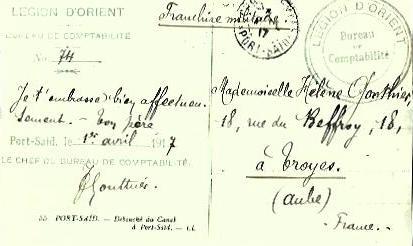 LEGION D'ORIENT
BUREAU DE COMPTABILITÉ
No 74
Je t'embrasse bien affectueu.
sement. - ton père
Port-Saïd, le 1er avril 1917
LE CHEF DU BUREAU DE COMPTABILITÉ.
35 PORT-SAÏD. - Débouché du Canal
à Port-Saïd. - LL
Franchise militaire
17
PORT-SAID
LEGION D'ORIENT
Bureau
de
Comptabilité
Mademoiselle Hélène Gonthier
18, rue du Beffroy, 18,
à Troyes.
(Aube)
- France. -